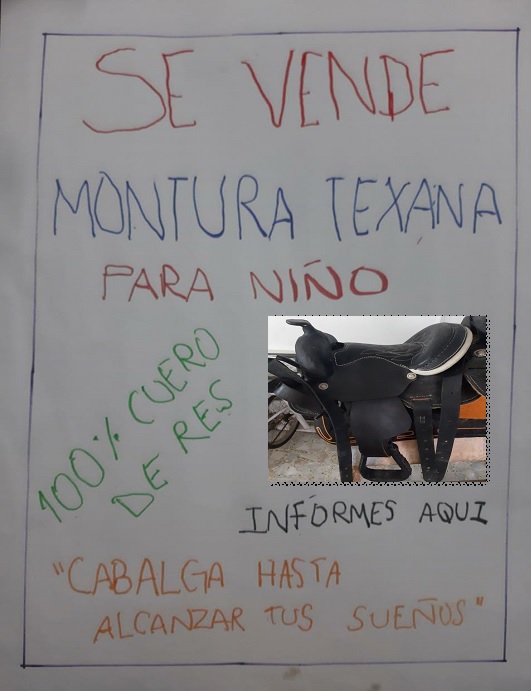 SE VENDE
MONTURA TEXANA
PARA NIÑO
100% CUERO
DE RES
INFORMES AQUI
"CABALGA HASTA
ALCANZAR TUS SUEÑOS"